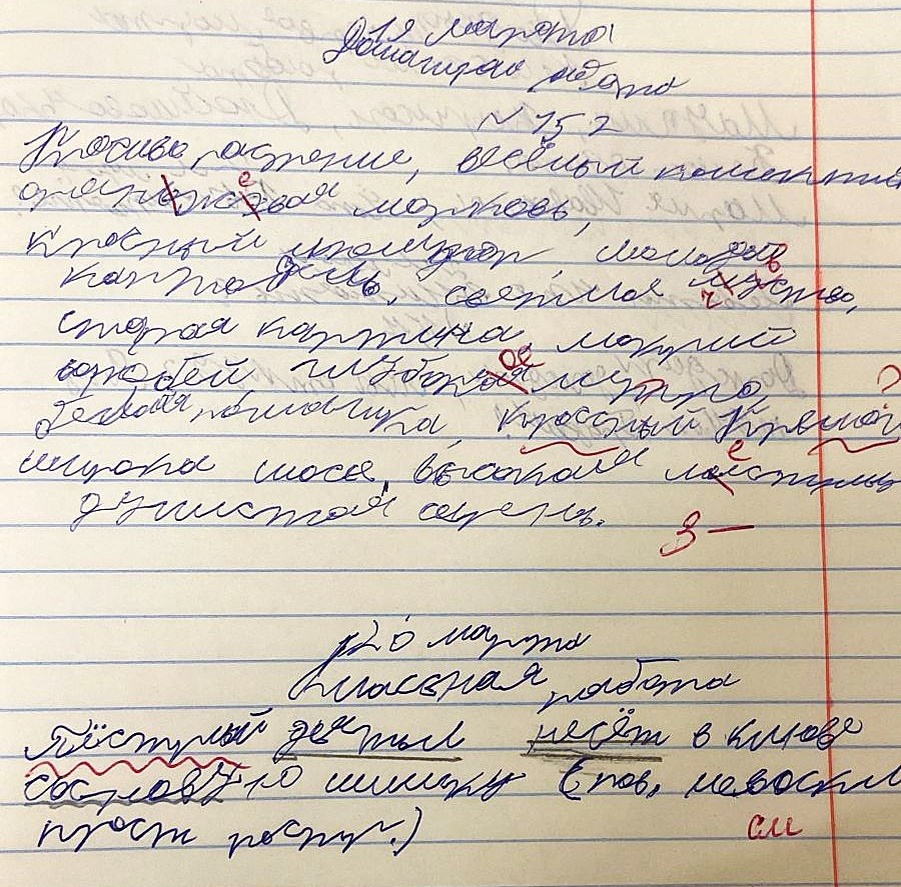 19 марта
Домашняя работа
№ 152
Красиво растение, весёлый
оранжевая морковь,
красный помидор, молодой
картофель, светлое чувство,
старая картина, мокрый
воробей, глубокое метро,
зелёная, красный Кремль ?
широка шоссе, высокая лестница
душистая сирень.
3 —
20 марта
Классная работа
Пёстрый дятел несёт в клюве
сосновую шишку (пов, невоскл
прост распр.)
см